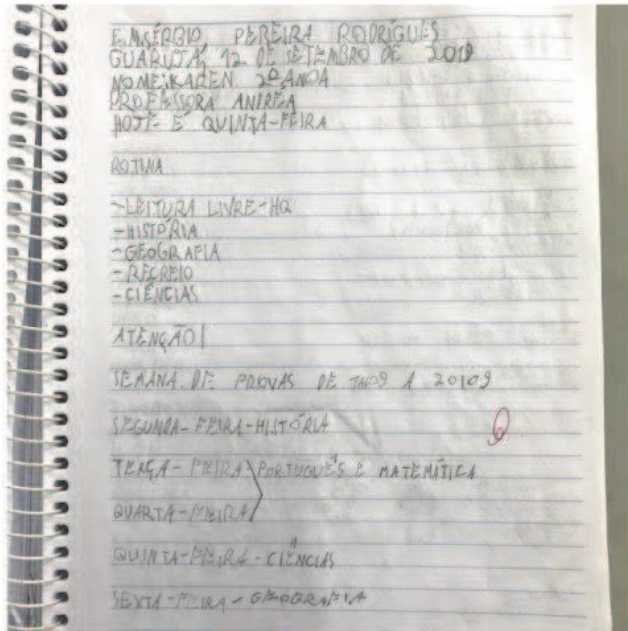 E.M.SÉRGIO PEREIRA RODRIGUES
GUARUJÁ, 12 DE SETEMBRO DE 2019
NOME:KAREN 2º ANO A
PROFESSORA ANDRÉA
HOJE É QUINTA-FEIRA
ROTINA
-LEITURA LIVRE-HQ
-HISTÓRIA
-GEOGRAFIA
-RECREIO
-CIÊNCIAS
ATENÇÃO!
SEMANA DE PROVAS DE 16/09 A 20/09
SEGUNDA-FEIRA-HISTÓRIA
TERÇA-FEIRA PORTUGUÊS E MATEMÍTICA
QUARTA-FEIRA
QUINTA-FEIRA-CIÊNCIAS
SEXTA-FEIRA-GEOGRAFIA